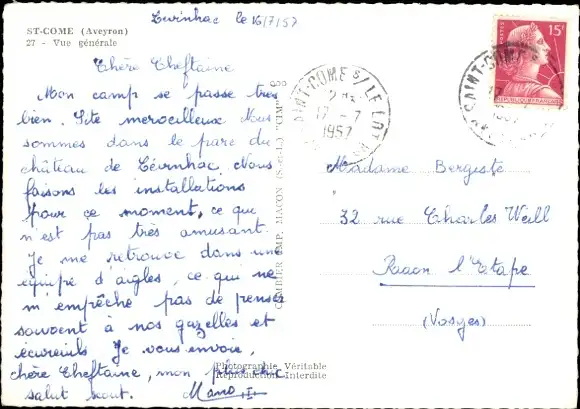 ST-COME (Aveyron)
27 - Vue générale
Levinhac le 16/7/57
Chère Cheftaine
Mon camp se passe très
bien. Site merveilleux Nous
sommes dans le parc du
château de Lévinhac. Nous
faisons les installations
pour ce moment, ce que
n'est pas très amusant.
Je me retrouve dans une
équipe d'aigles, ce qui ne
m'empêche pas de penser
souvent à nos gazelles et
écureuils. Je vous envoie,
chère Cheftaine, mon plus
salut scout.
COMBIER IMP. MACON (S.-et-L.) "CIM"
Photographie Véritable
Reproduction Interdite
SAINT-COME S/ LE LOT
17 - 7
1957
POSTES
15F
REPUBLIQUE FRANÇAISE
SAINT-COME
Madame Bergiste
32 rue Charles Weill
Raon l'Etape
(Vosges)